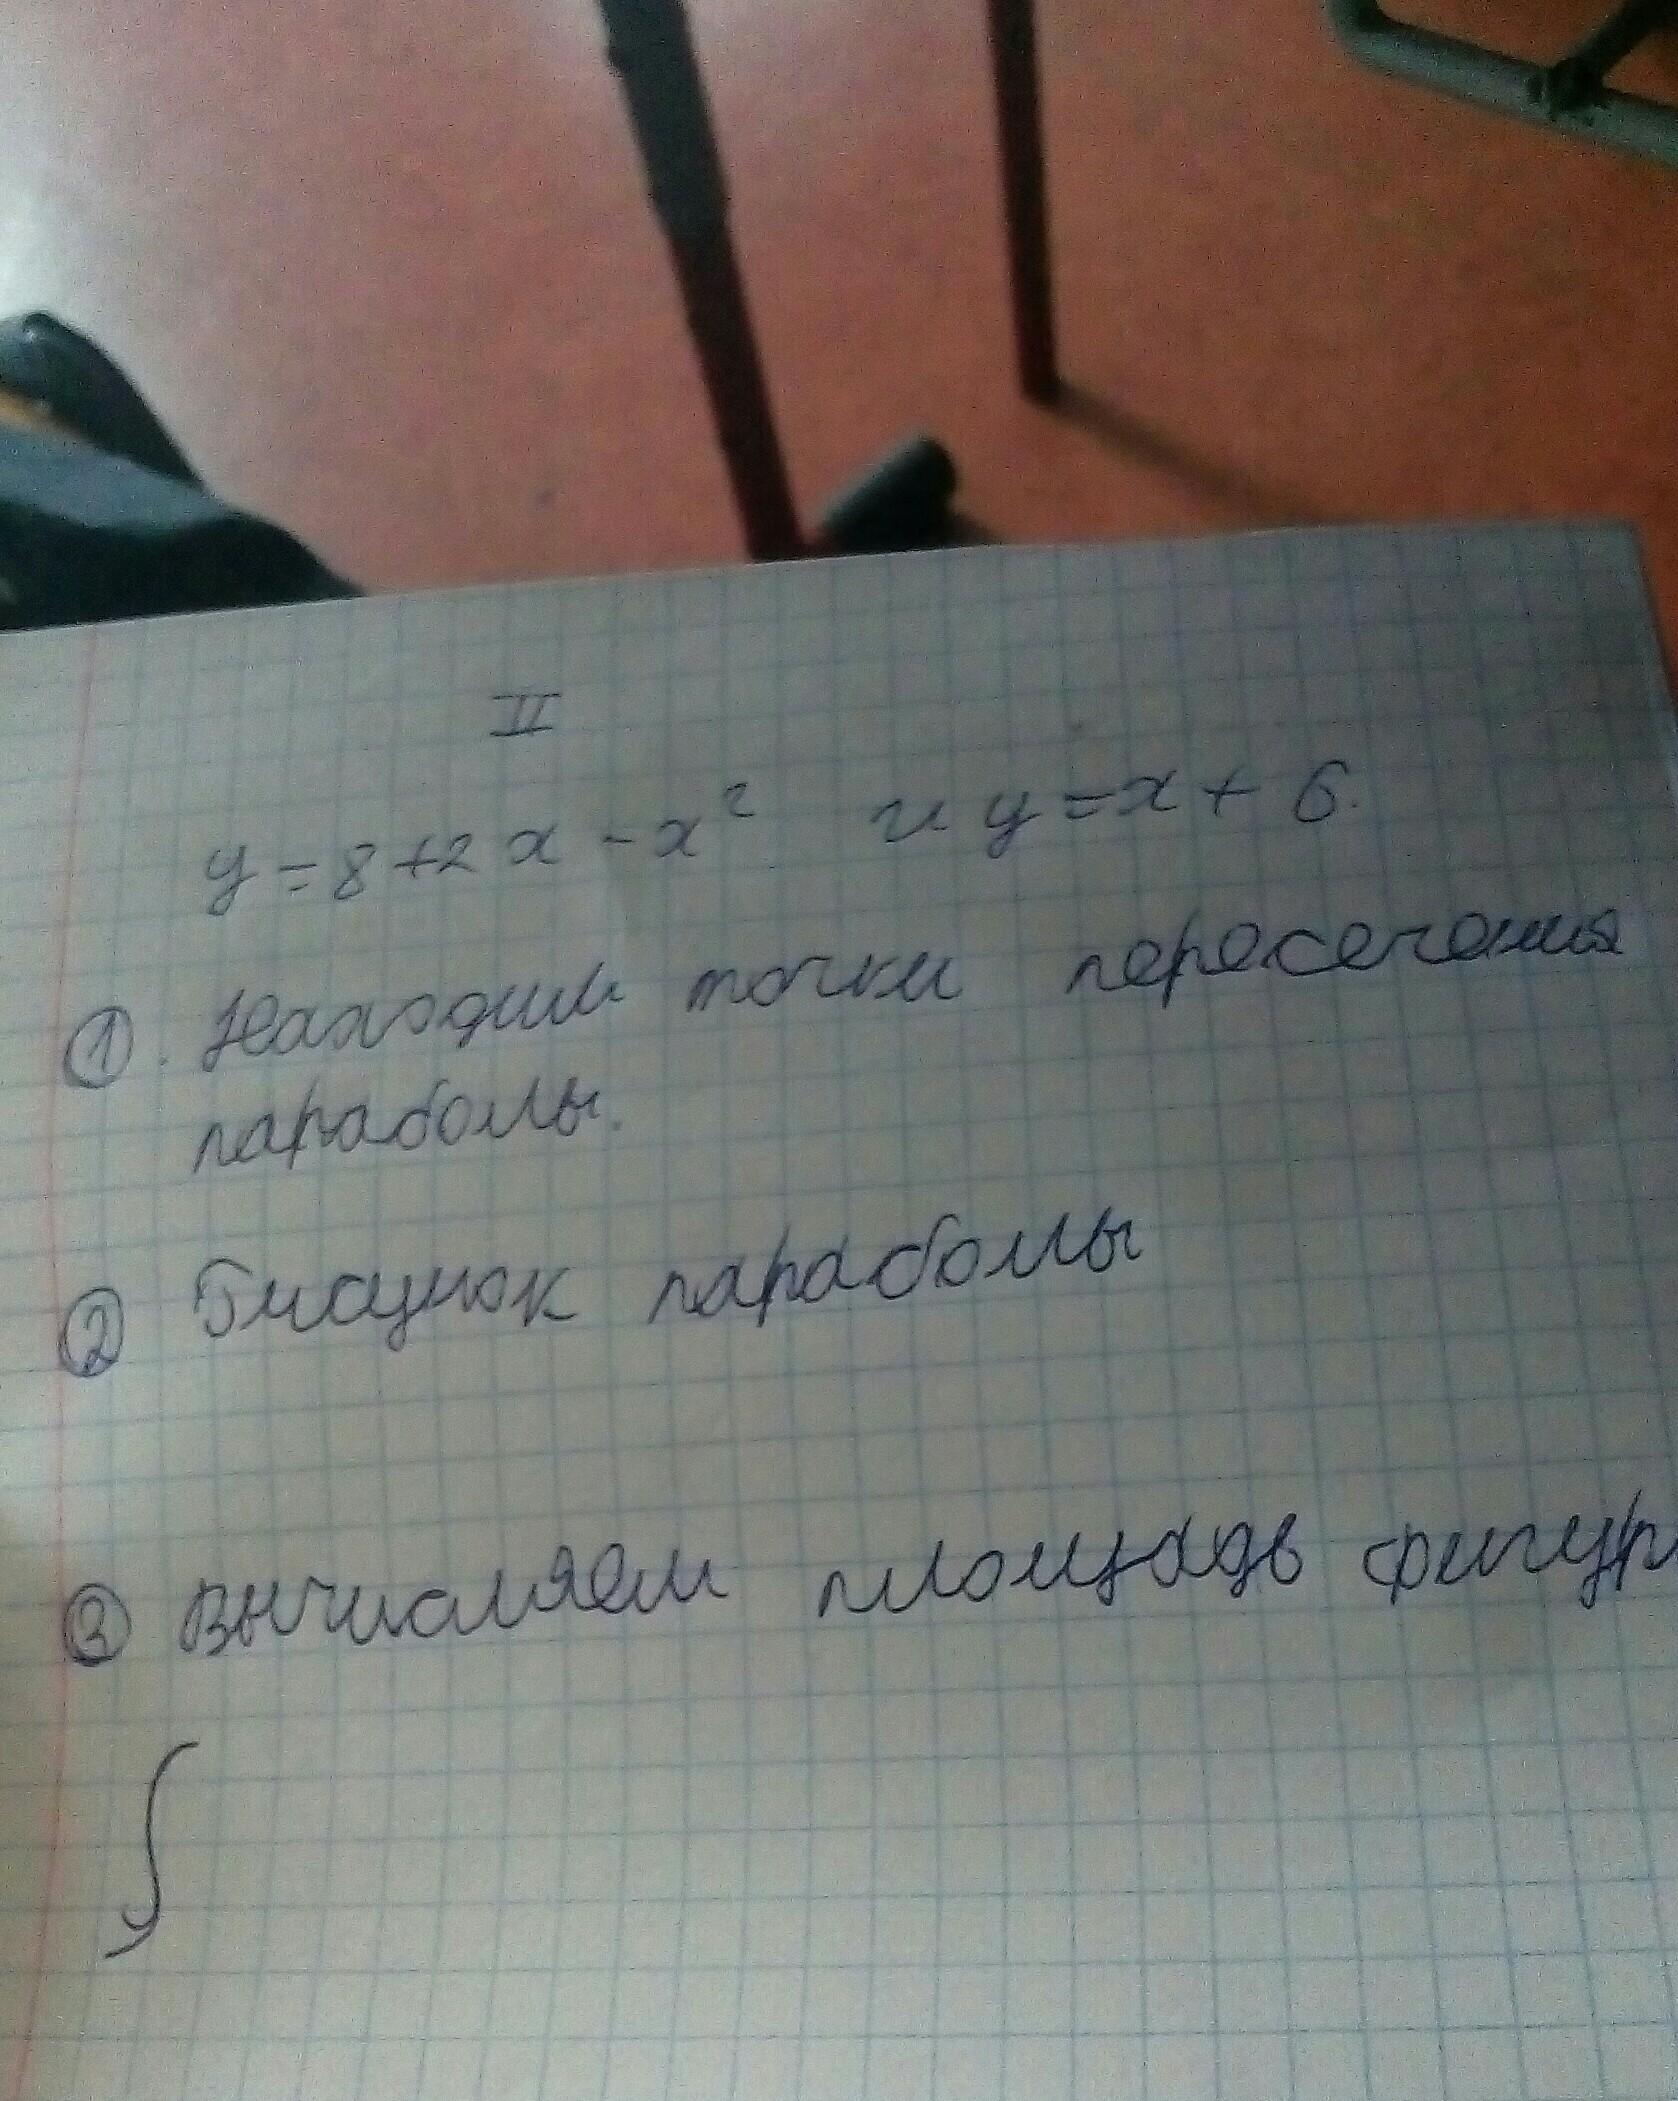 II
y = 8 + 2x - x² и y = x + 6.
① . Находим точки пересечения
параболы.
② Рисунок параболы
③ Вычисляем площадь фигур
∫